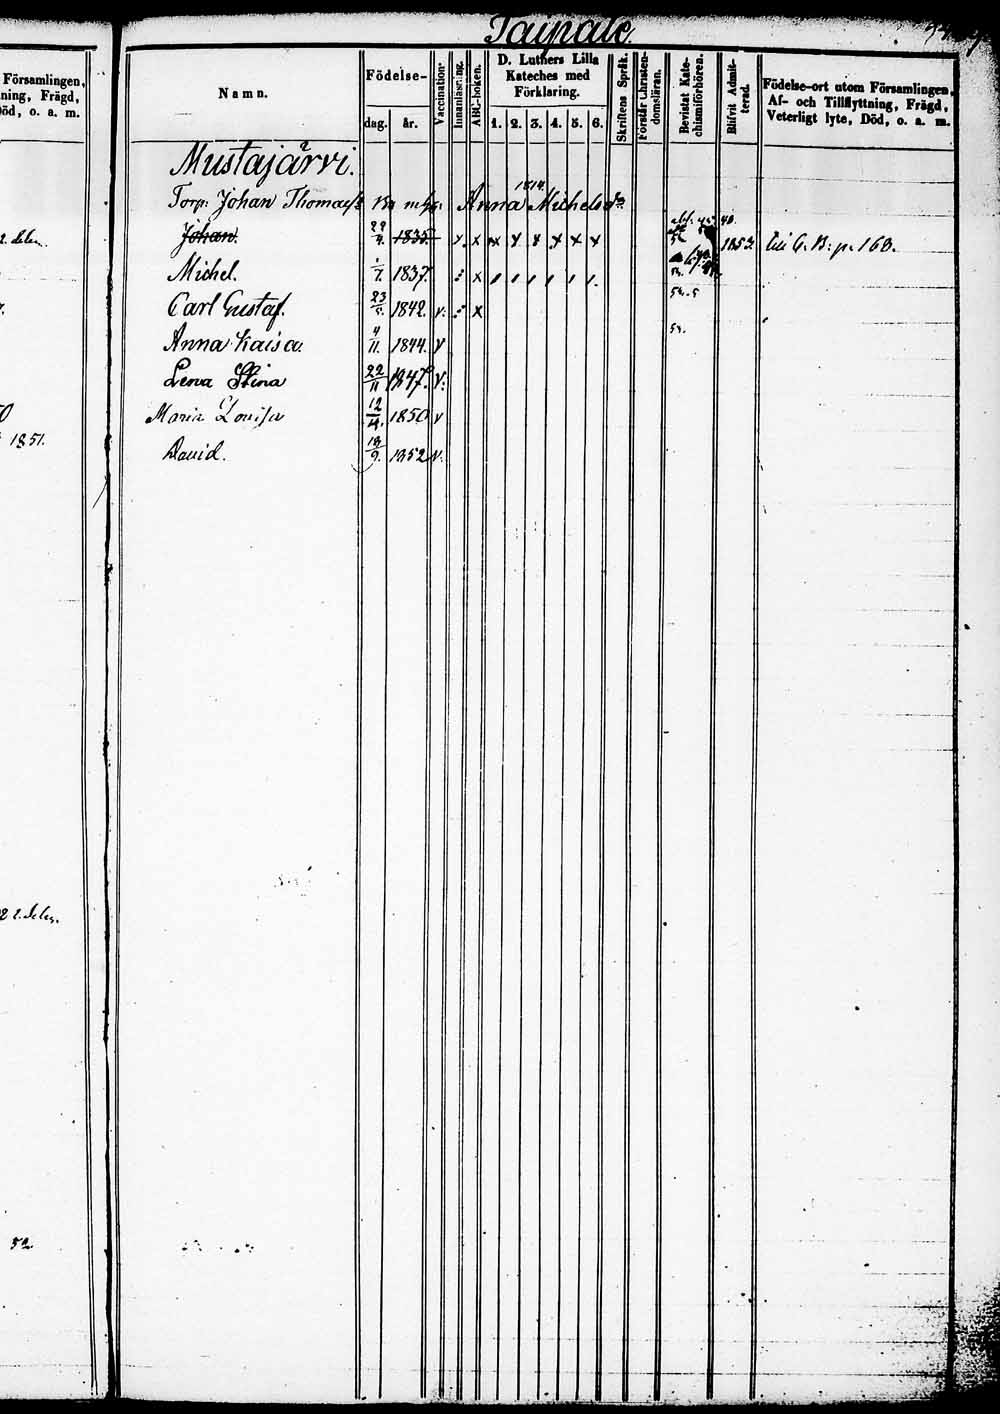 Taipale.
Församlingen,
ning, Frägd,
öd, o. a. m.
Namn.
Födelse-
dag. år.
Vaccination.
Innanläsning.
ABC-boken.
D. Luthers Lilla
Kateches med
Förklaring.
1. 2. 3. 4. 5. 6.
Skriftens Språk.
Förstår Christen-
domsläran.
Bevistat Kate-
chismiförhören.
Blifvit Admit-
terad.
Födelse-ort utom Församlingen,
Af- och Tillflyttning, Frägd,
Veterligt lyte, Död, o. a. m.
Mustajärvi.
1814.
Torp: Johan Thomass Anna Michelsdr
Johan. 22/4. 1835 x x x x x x x 1853. till C. B: p. 168.
Michel. 1/7. 1837. x
Carl Gustaf. 23/5. 1842. v. x
Anna Kaisa. 4/11. 1844. v
Lena Stina 22/11 1847. v.
Maria Lovisa 12/4. 1850 v
David. 18/9. 1852 v.
1851.
52